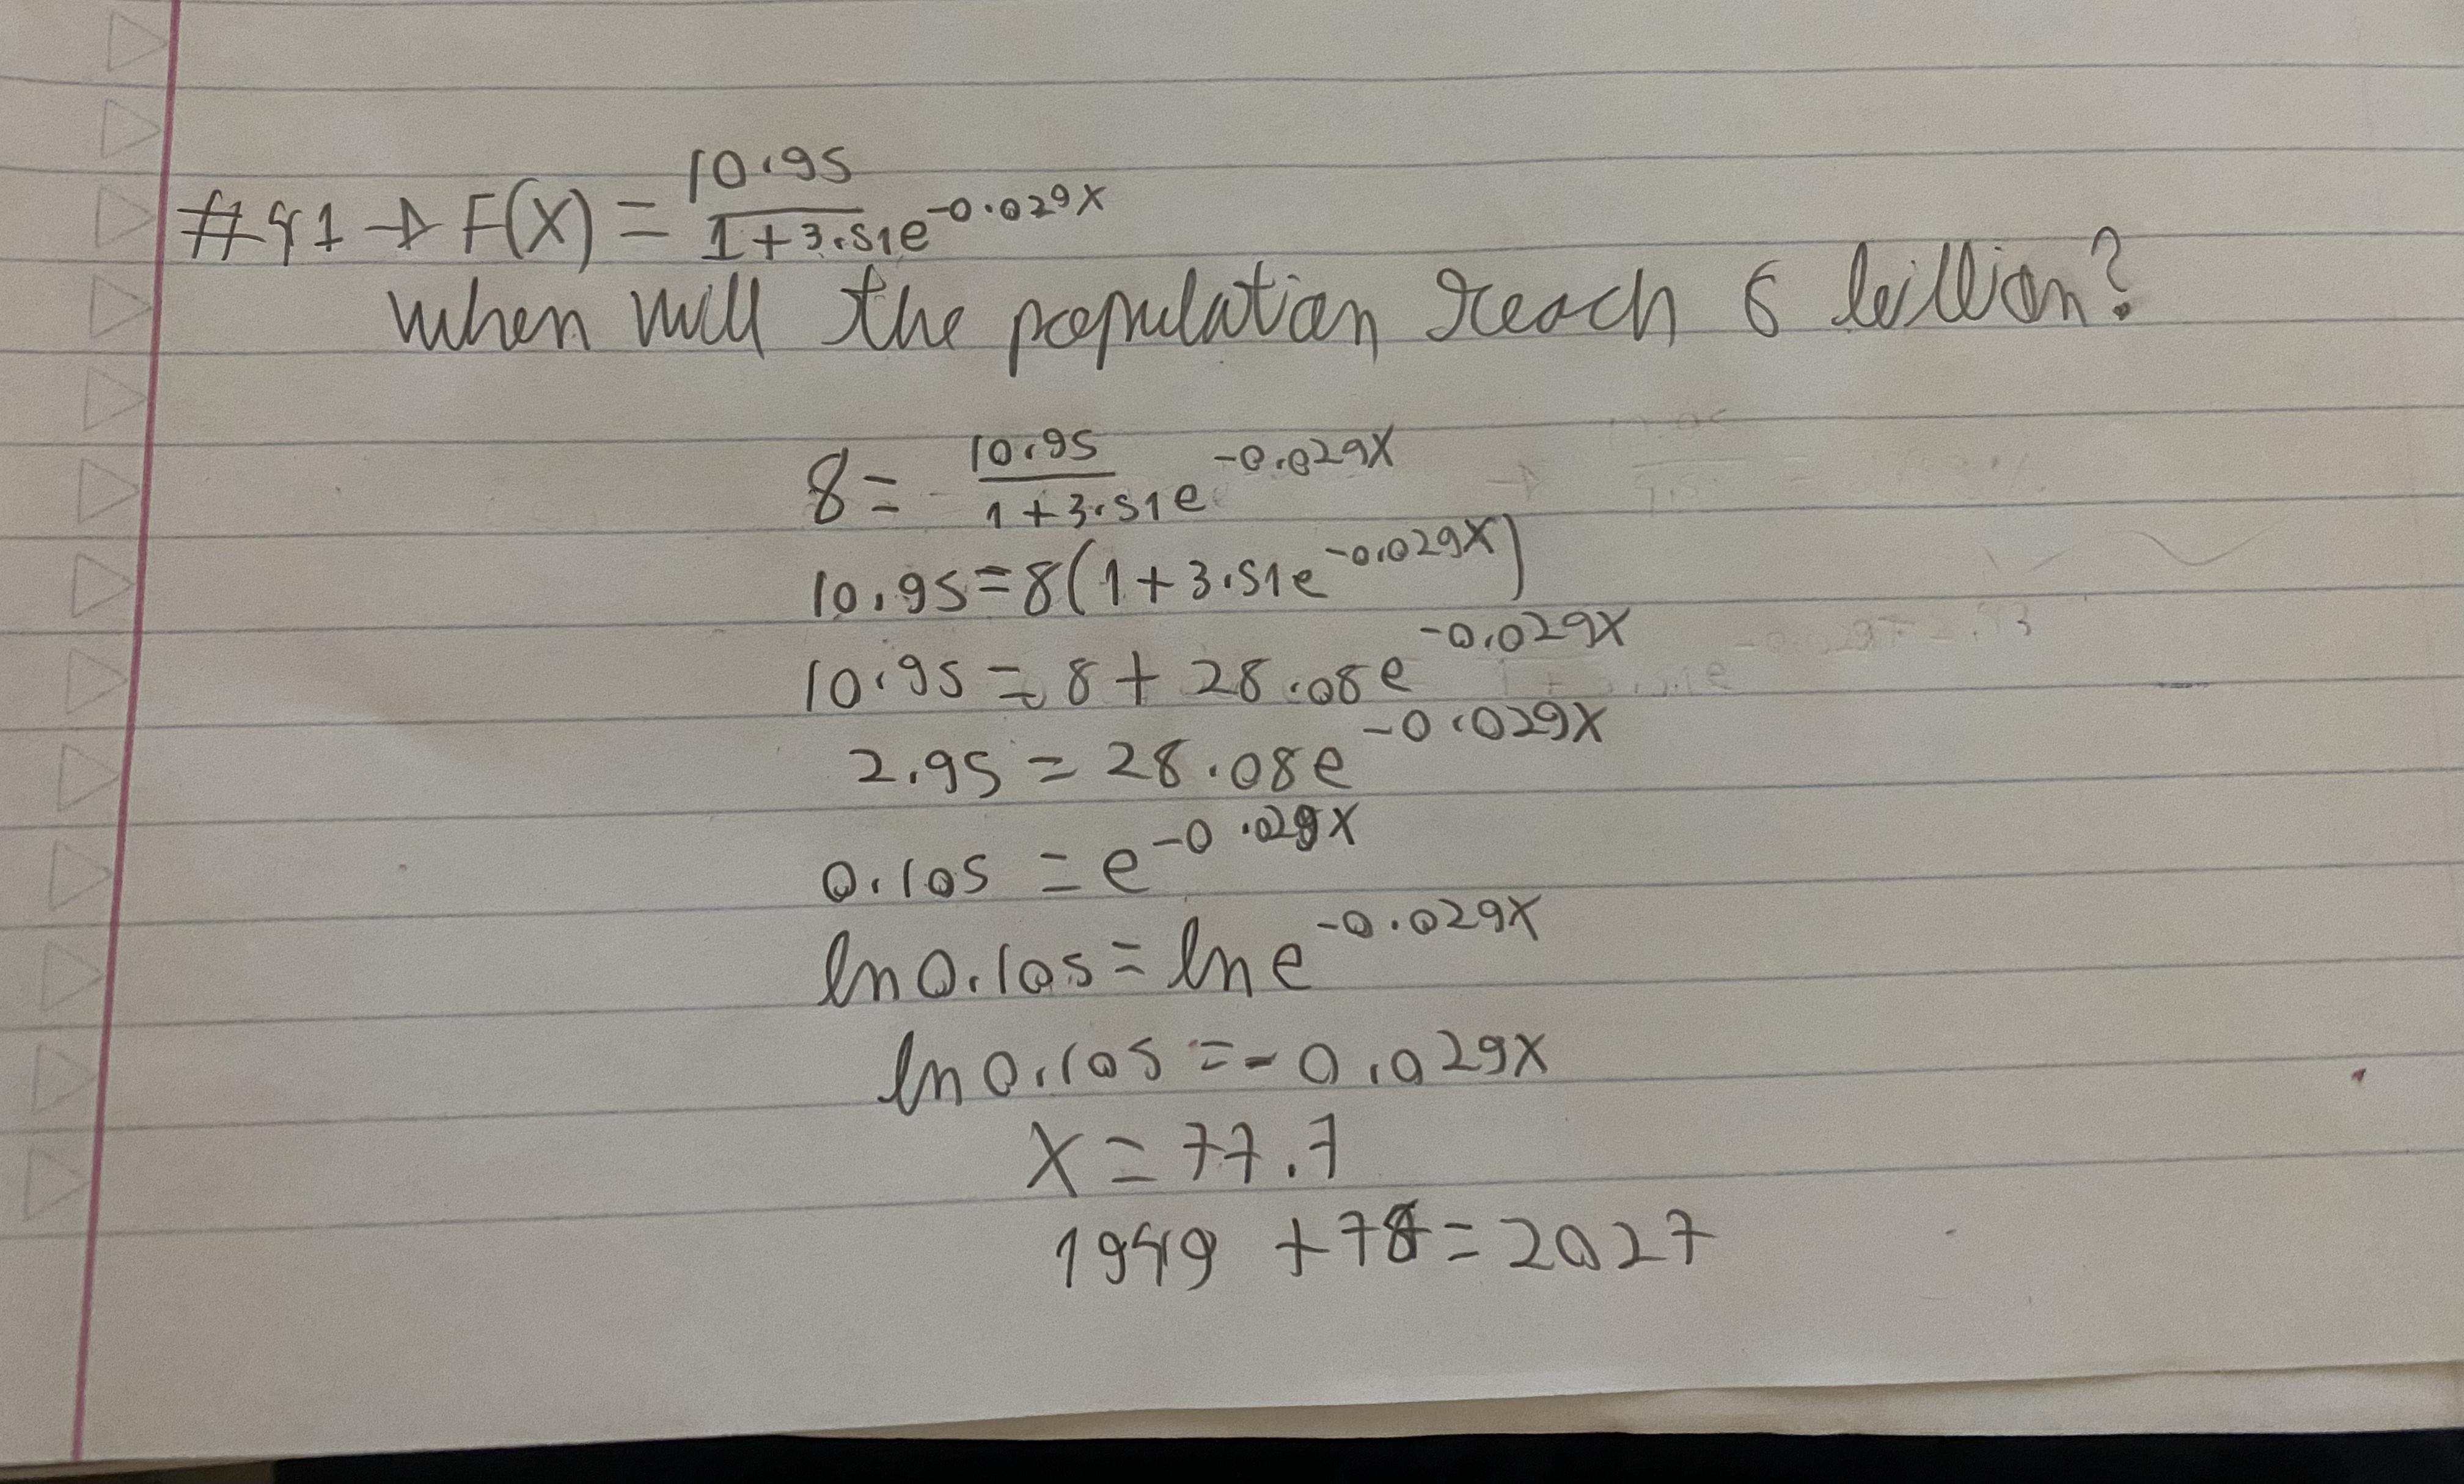 #41 → F(X) = 10.95 / 1+3.51e^-0.029X
when will the population reach 6 billion?
8 = 10.95 / 1+3.51e^-0.029X
10.95=8(1+3.51e^-0.029X)
10.95 = 8 + 28.08e^-0.029X
2.95 = 28.08e^-0.029X
0.105 = e^-0.029X
ln0.105 = lne^-0.029X
ln0.105 = -0.029X
X = 77.7
1949 +78 = 2027